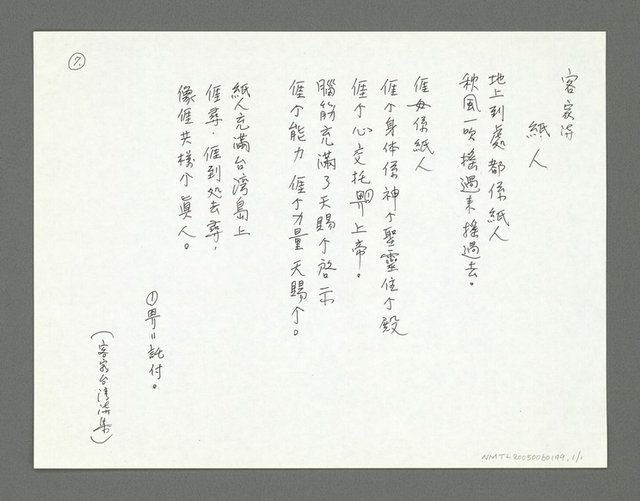 7.
客家詩
紙人
地上到處都係紙人
秋風一吹搖過來搖過去。
𠊎毋係紙人
𠊎个身体係神个聖靈住个殿
𠊎个心交托畀①上帝。
腦筋充滿了天賜个啓示
𠊎个能力𠊎个力量天賜个。
紙人充滿台湾島上
𠊎尋,𠊎到処去尋,
像𠊎共樣个眞人。
①畀=託付。
(客家台湾詩集)
NMTL20050060199, 1/1